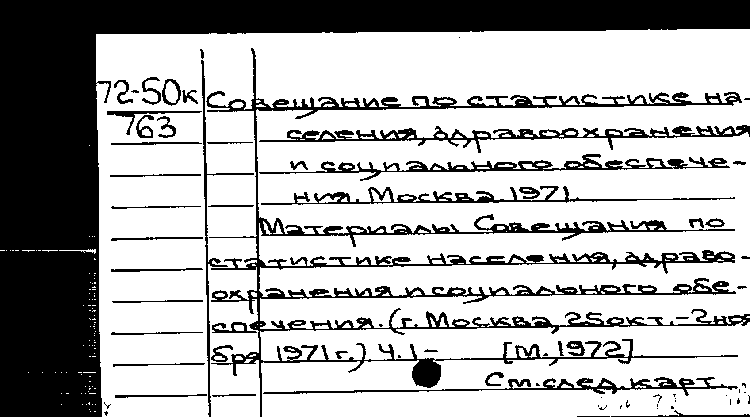 72-50к Совещание по статистике на-
763 селения, здравоохранения
и социального обеспече-
ния. Москва 1971.
Материалы Совещания по
статистике населения, здраво-
охранения и социального обе-
спечения. (г. Москва, 25 окт.-2 ноя
бря 1971 г.) Ч.1- [М., 1972]
См. след. карт.